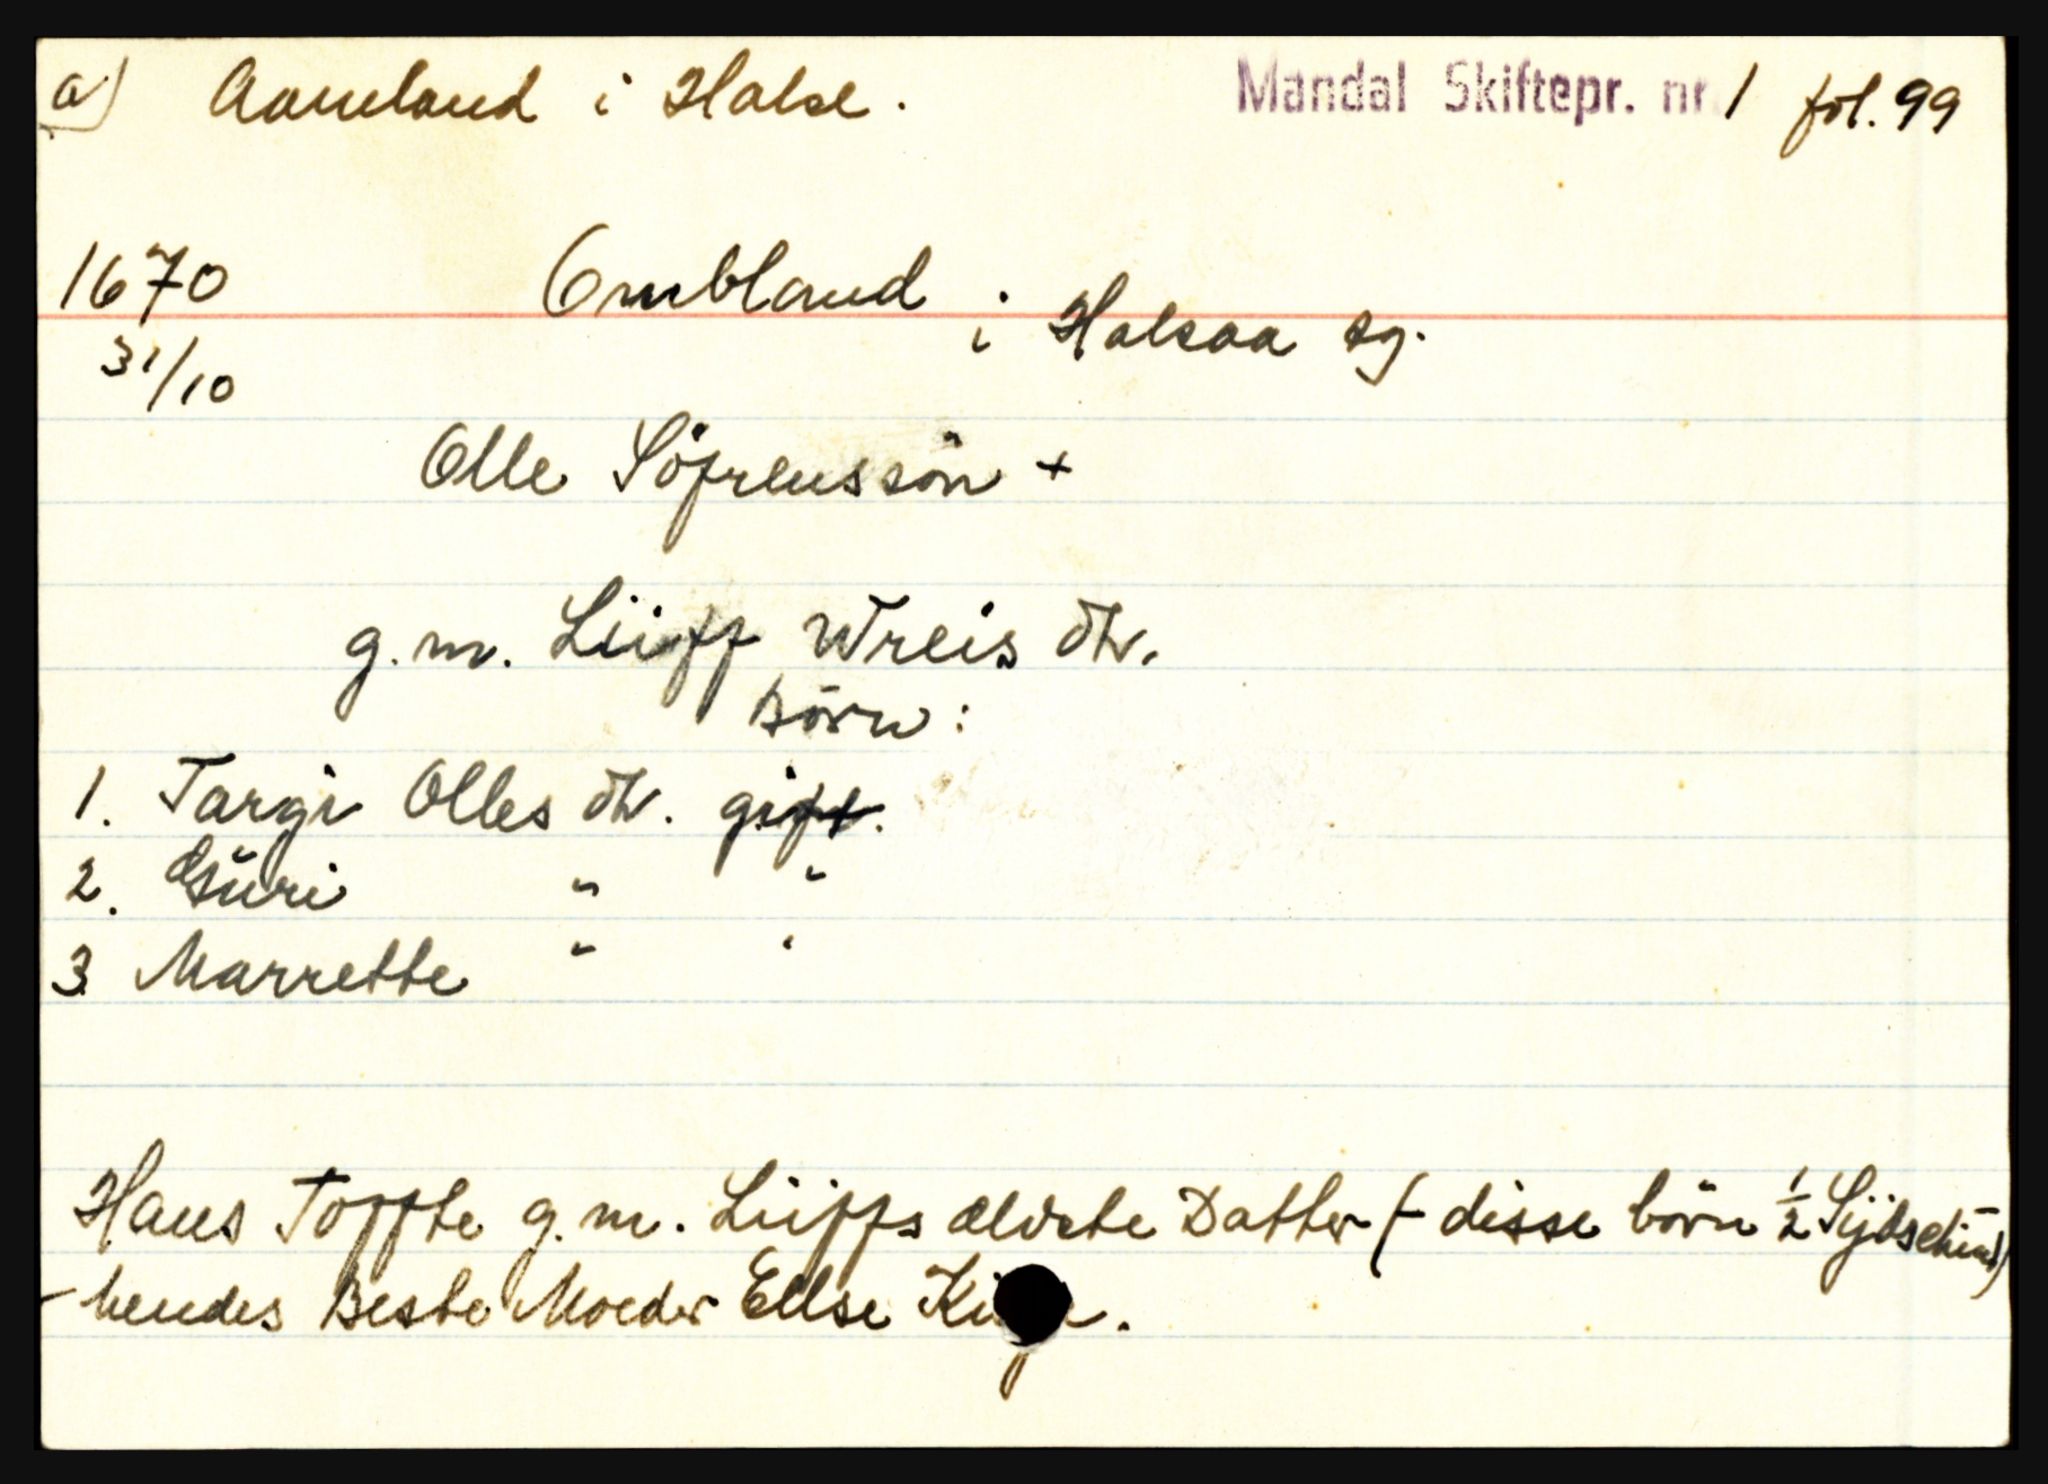 a) Aameland i Halse. Mandal Skiftepr. nr. 1 fol. 99
1670 Ombland i Halsaa sg.
31/10
Olle Söfrenssön +
g.m. Liiff Wreis dtr.
Börn:
1. Targi Olles dtr. gift.
2. Guri " "
3 Marrette " "
Hans Toffte g.m. Liiffs eldste Datter (- disse börn 1/2 Sydschind)
- hendes Beste Moder Ellse